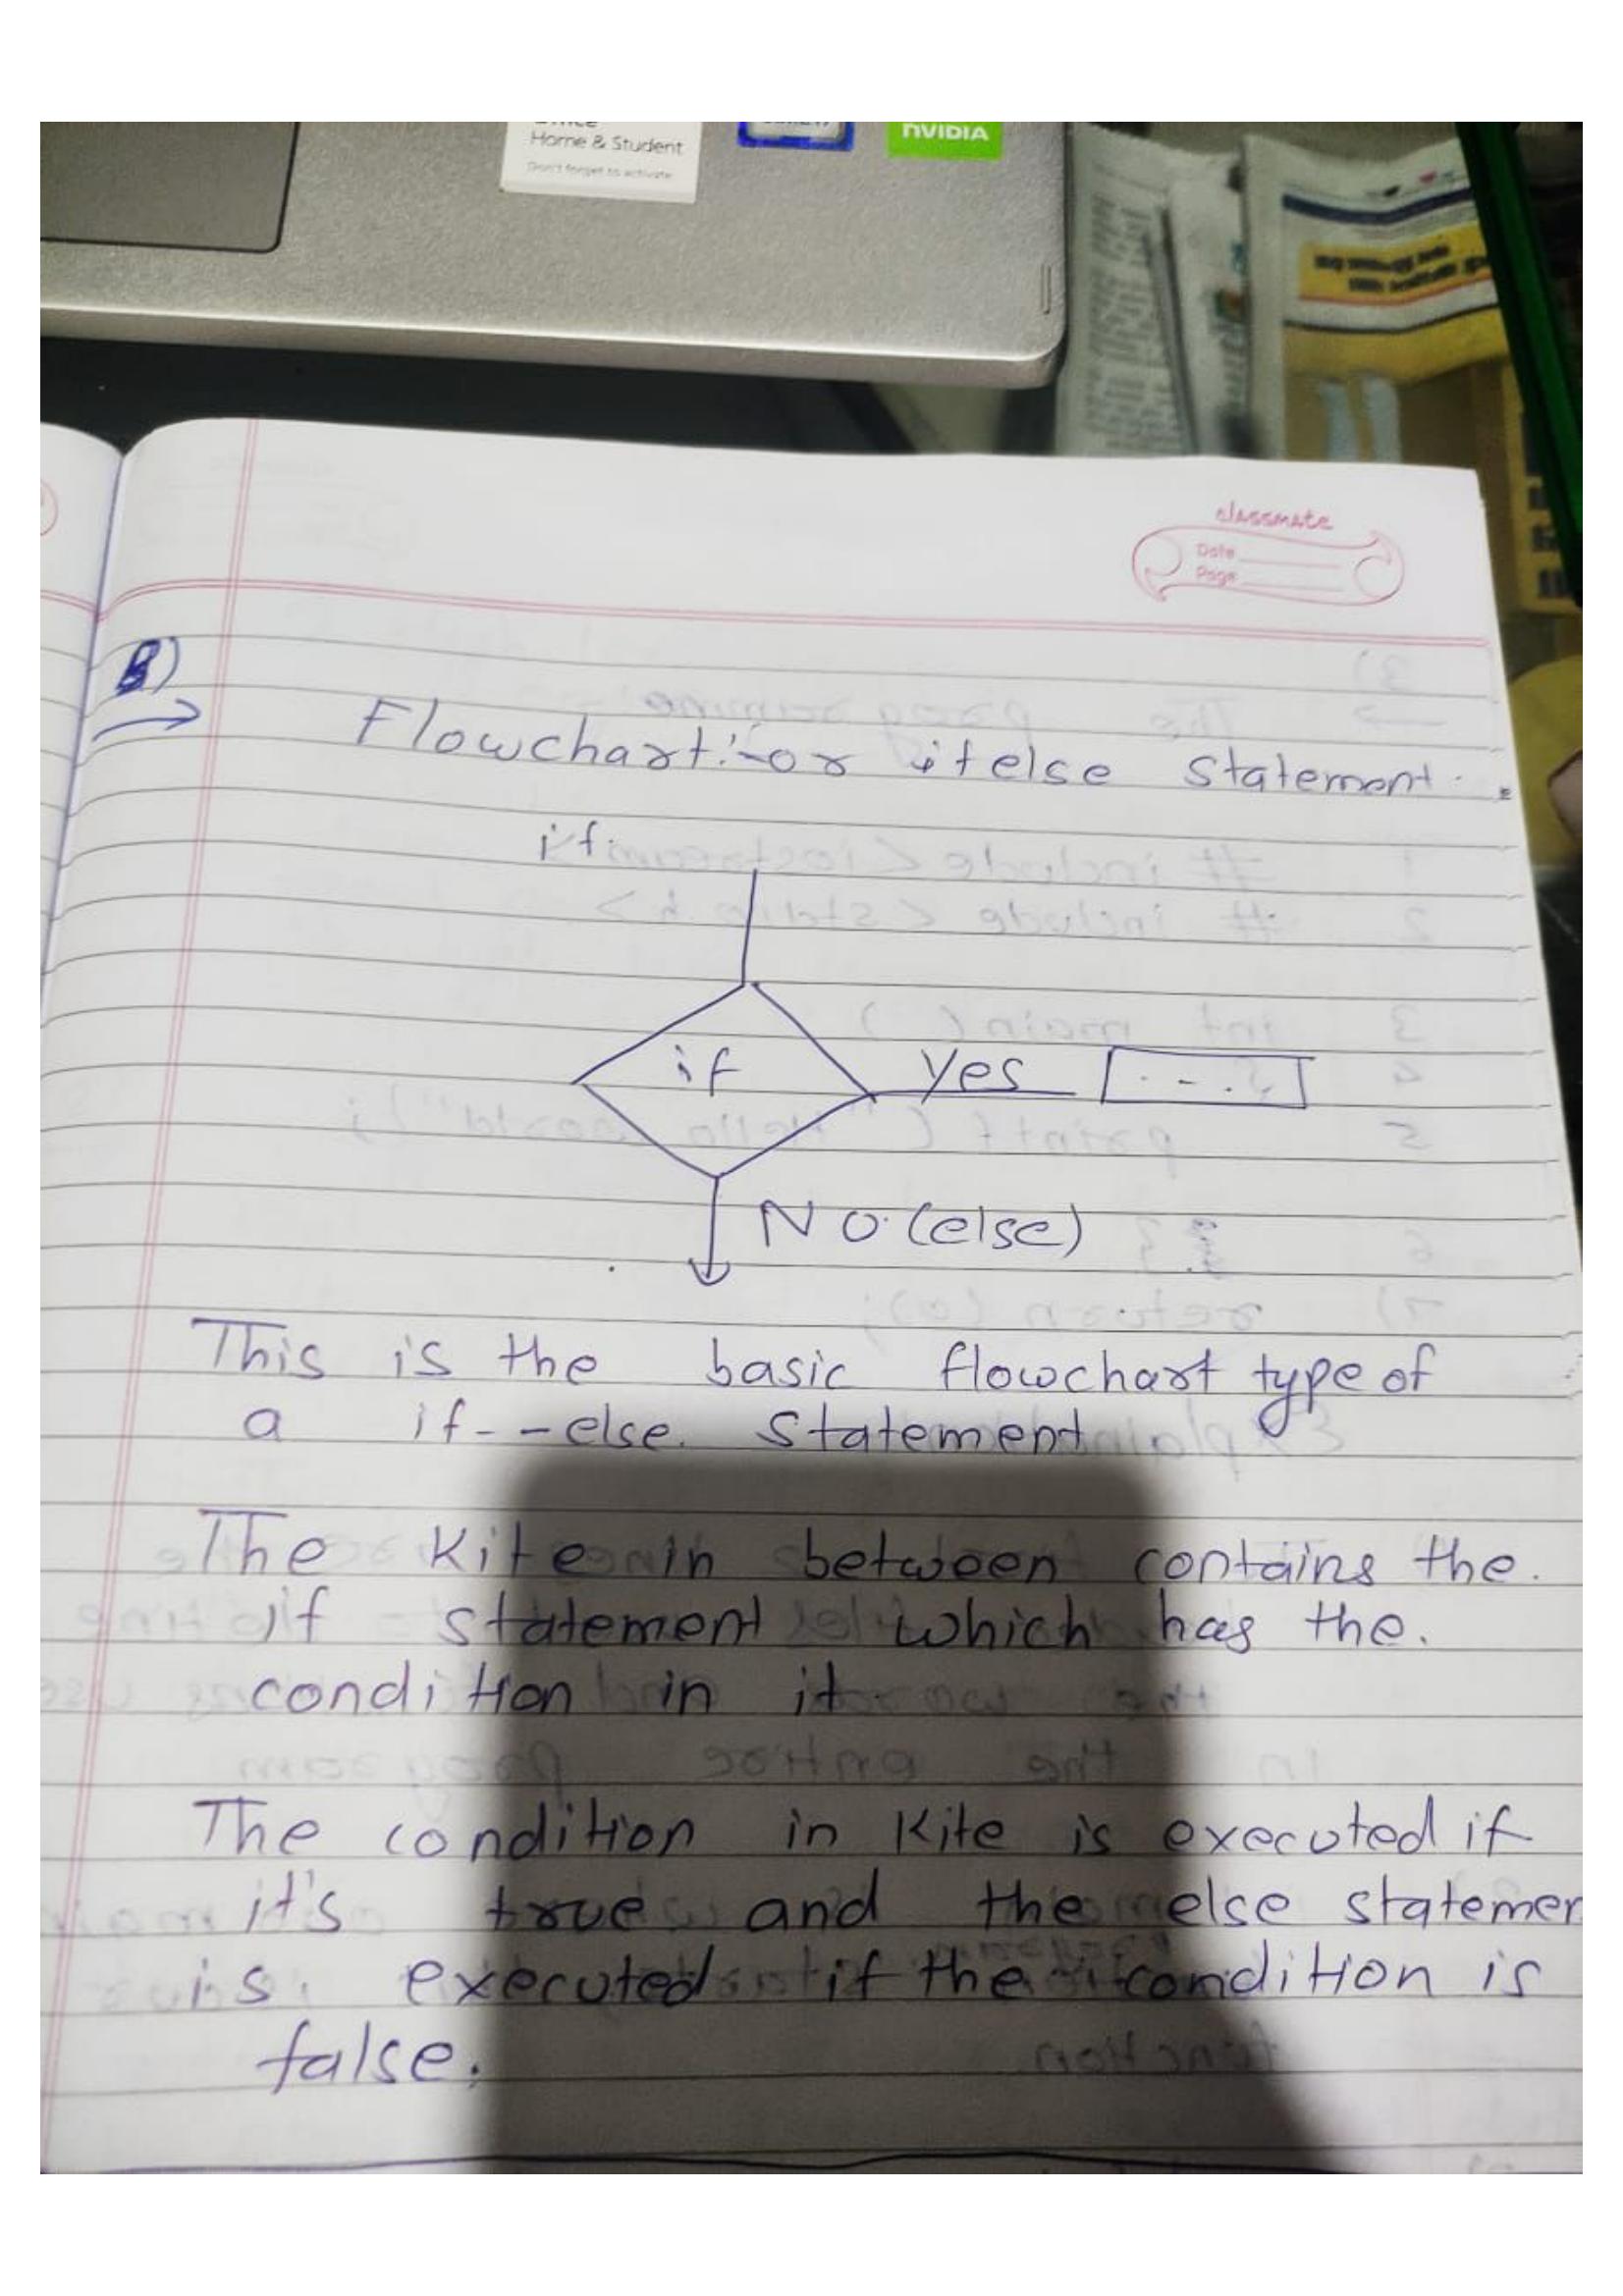 Home & Student
Don't forget to activate
nVIDIA
classmate
Date
Page
B)
Flowchart for if else statement.
if
if
Yes
...
NO (else)
This is the basic flowchart type of
a if--else. statement
The Kite in between contains the.
if statement which has the.
condition in it
The condition in Kite is executed if
it's true and the else statemen
is executed if the condition is
false.